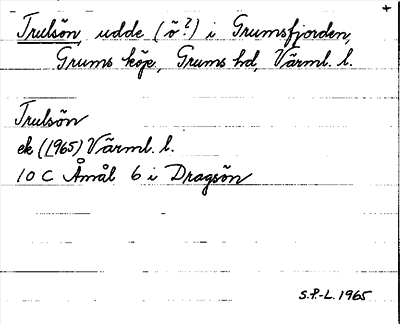 +
Trulsön, udde (ö?) i Grumsfjorden,
Grums köp., Grums hd, Värml. l.
Trulsön
ek (1965) Värml. l.
10 C Åmål 6 i Dragsön
S.P.-L. 1965